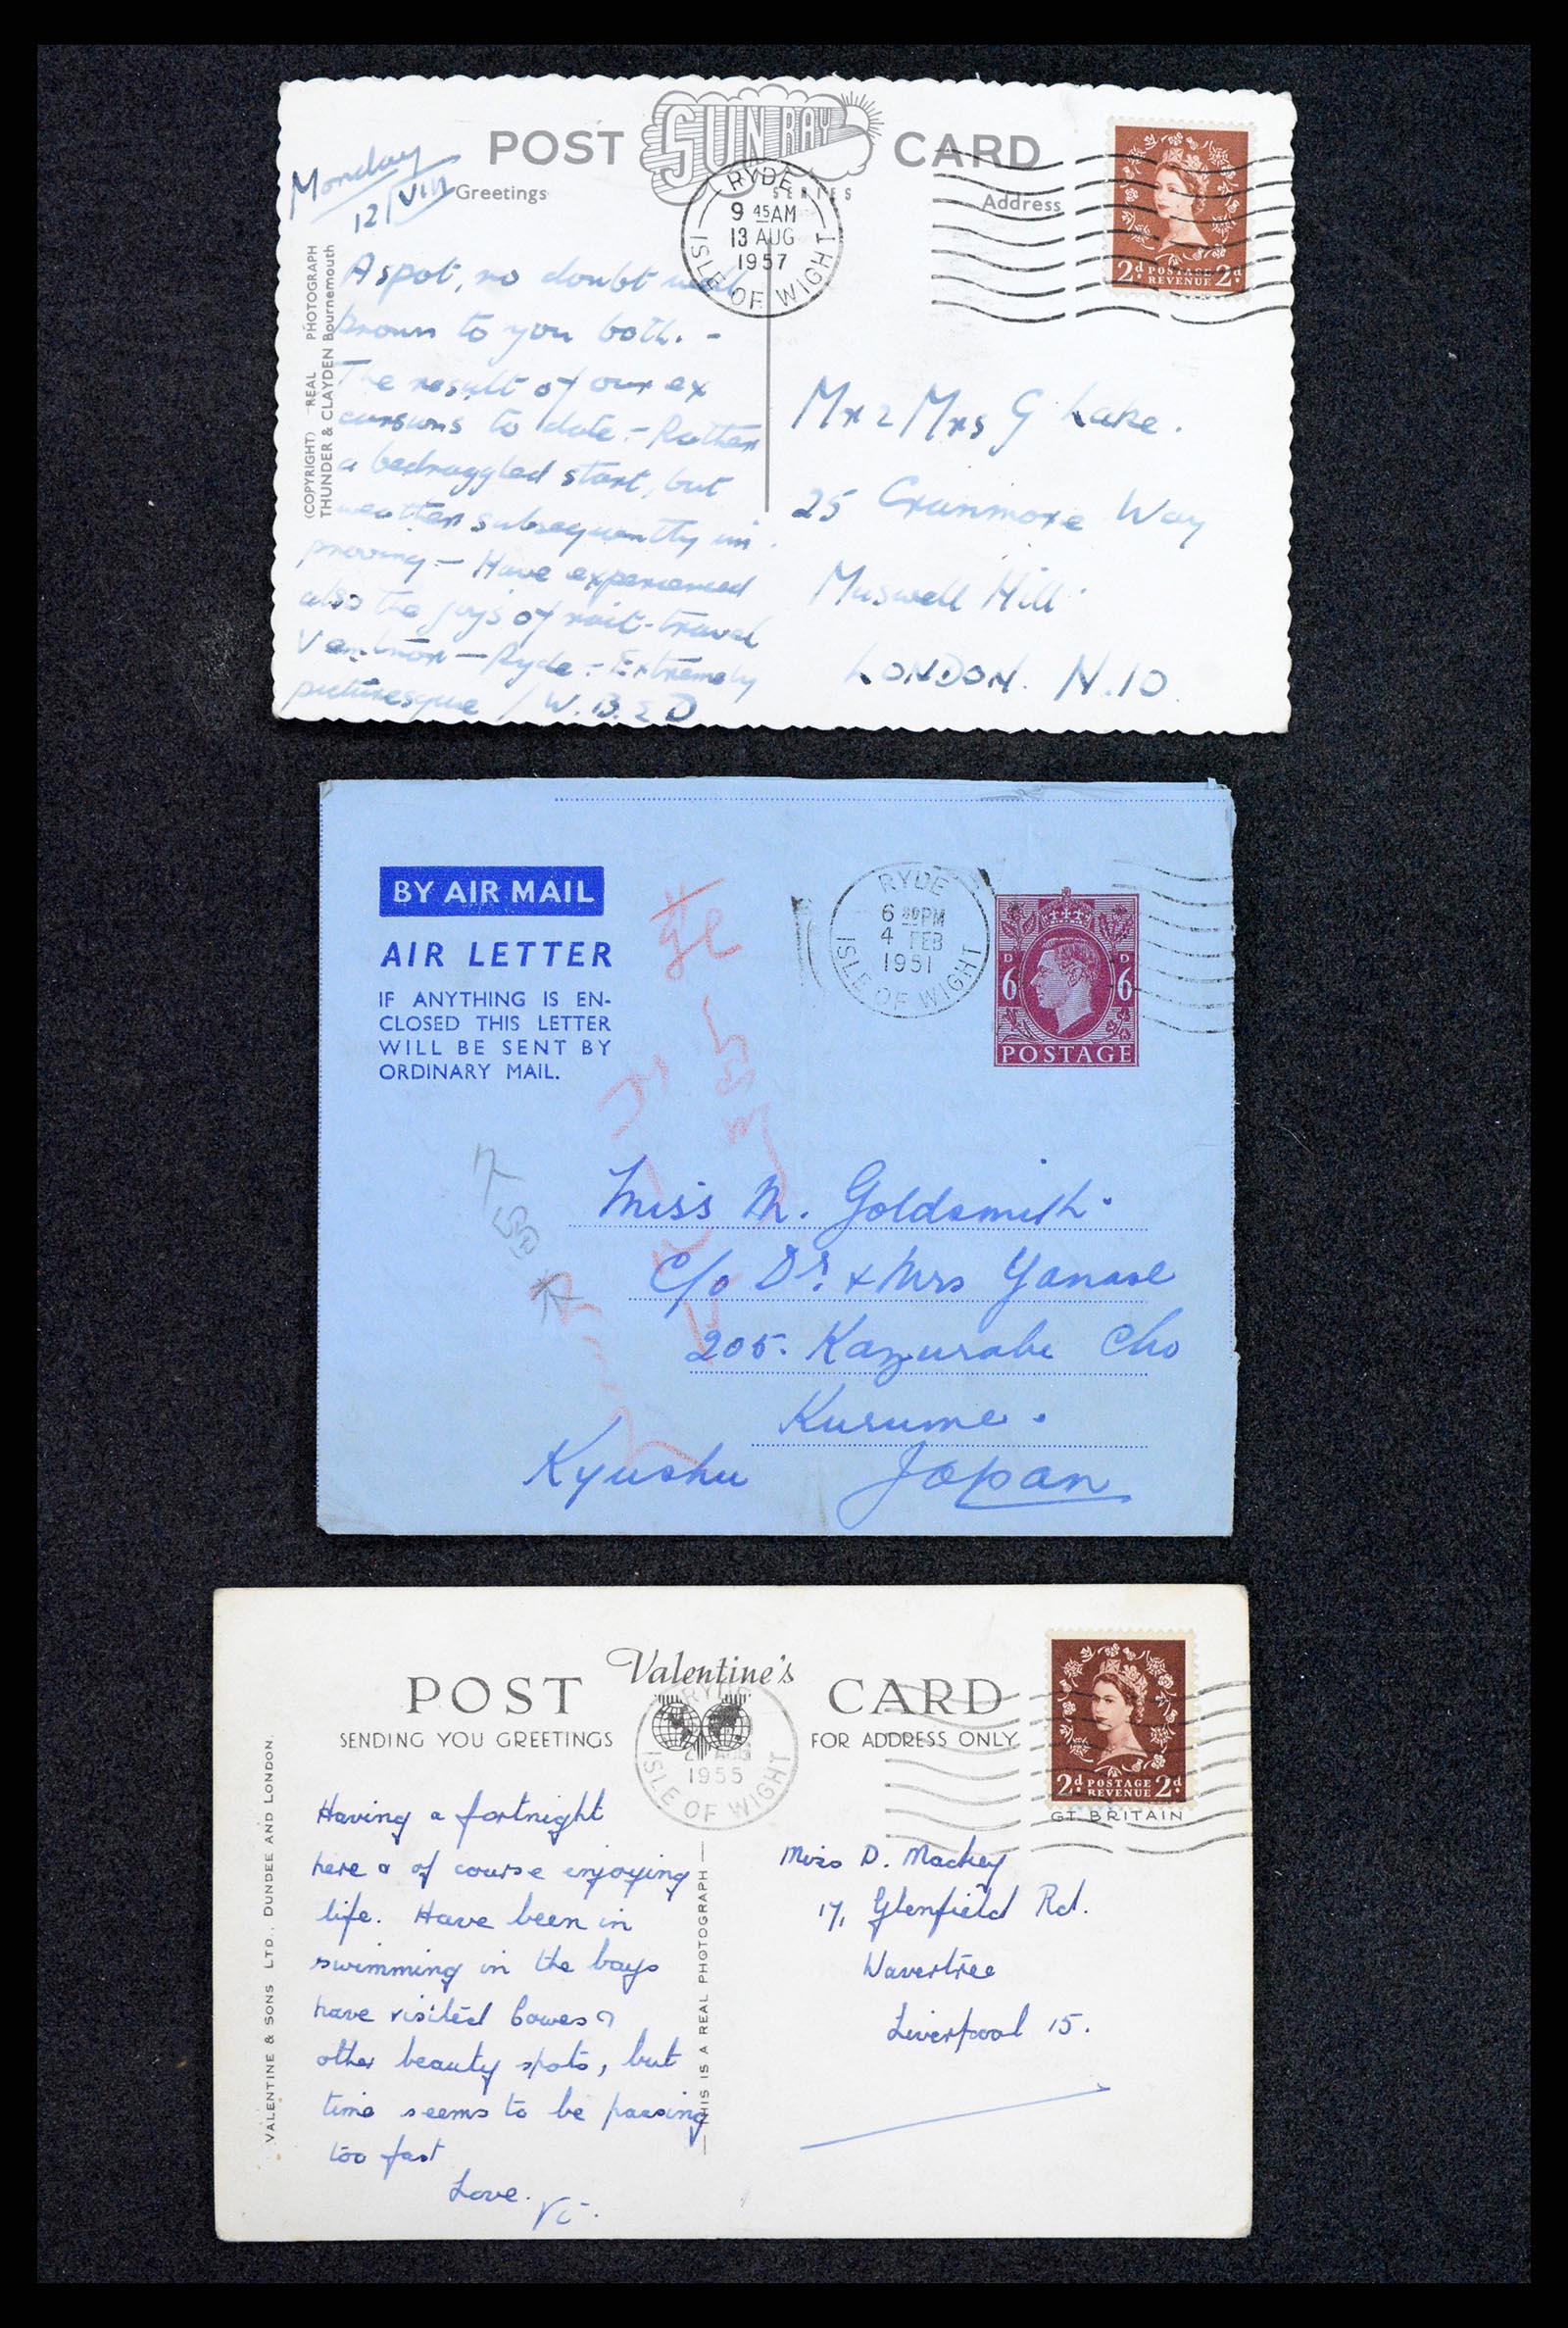 POST SUN RAY CARD
SERIES
Monday
12/VIII
Greetings
Address
RYDE
9 45AM
13 AUG
1957
ISLE OF WIGHT
2d POSTAGE 2d
REVENUE
(COPYRIGHT) REAL PHOTOGRAPH
THUNDER & CLAYDEN Bournemouth
A spot, no doubt well
known to you both. -
The result of our ex
cursions to date. - Rather
a bedraggled start, but
weather subsequently im
proving - Have experienced
also the joys of rail-travel
Ventnor - Ryde. - Extremely
picturesque / W. B. & D
Mr & Mrs G Lake.
25 Cranmore Way
Muswell Hill
LONDON. N.10
BY AIR MAIL
AIR LETTER
IF ANYTHING IS EN-
CLOSED THIS LETTER
WILL BE SENT BY
ORDINARY MAIL.
RYDE
6 PM
4 FEB
1951
ISLE OF WIGHT
D D
6 6
POSTAGE
Miss M. Goldsmith.
c/o Dr. & Mrs Yanase
205. Kazurabe Cho
Kurume.
Kyushu Japan
POST Valentine's CARD
SENDING YOU GREETINGS
FOR ADDRESS ONLY
RYDE
AUG
1955
ISLE OF WIGHT
2d POSTAGE 2d
REVENUE
GT. BRITAIN
VALENTINE & SONS LTD., DUNDEE AND LONDON.
THIS IS A REAL PHOTOGRAPH
Having a fortnight
here & of course enjoying
life. Have been in
swimming in the bays
have visited Cowes &
other beauty spots, but
time seems to be passing
too fast
Love.
Vi.
Miss D. Mackey
17, Glenfield Rd.
Wavertree
Liverpool 15.